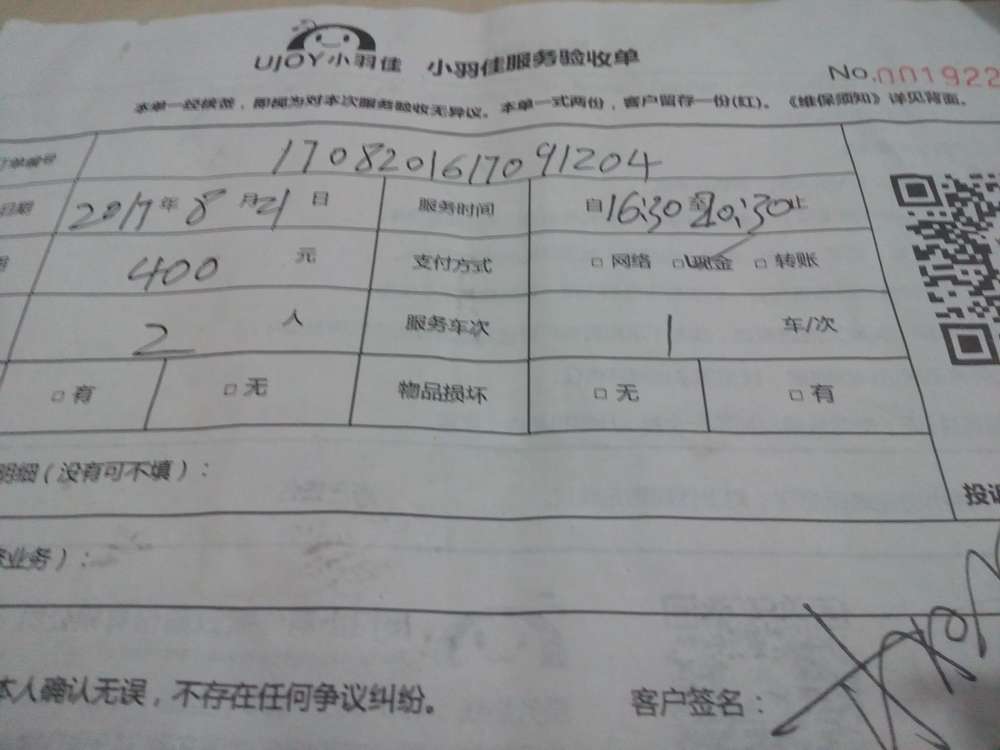 UJOY小羽佳 小羽佳服务验收单
No.001922
本单一经核签，即视为对本次服务验收无异议。本单一式两份，客户留存一份(红)。《维保须知》详见背面。
订单编号 17082016170 91204
日期 2017年8月21日 服务时间 自16:30至20:30止
400 元 支付方式 □ 网络 □ 现金 □ 转账
2 人 服务车次 1 车/次
□ 有 □ 无 物品损坏 □ 无 □ 有
明细（没有可不填）：
投诉
业务）：
本人确认无误，不存在任何争议纠纷。 客户签名：